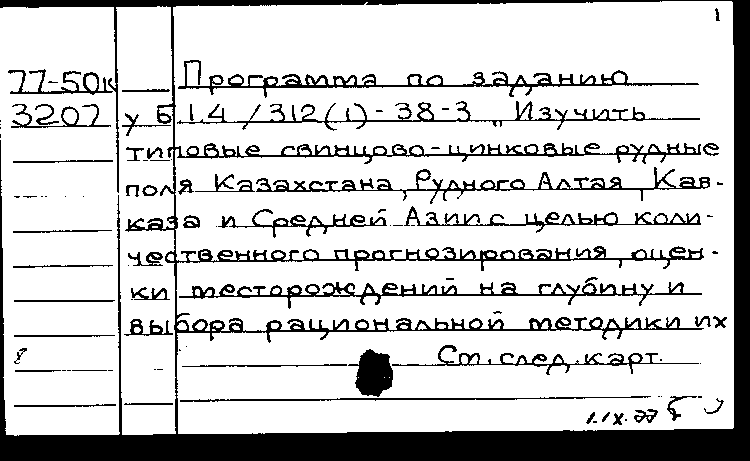 1
77-50к Программа по заданию
3207 у Б 1.4/312(1)-38-3 „Изучить
типовые свинцово-цинковые рудные
поля Казахстана, Рудного Алтая, Кав-
каза и Средней Азии с целью коли-
чественного прогнозирования, оцен-
ки месторождений на глубину и
выбора рациональной методики их
8 См. след. карт.
1.IX.77